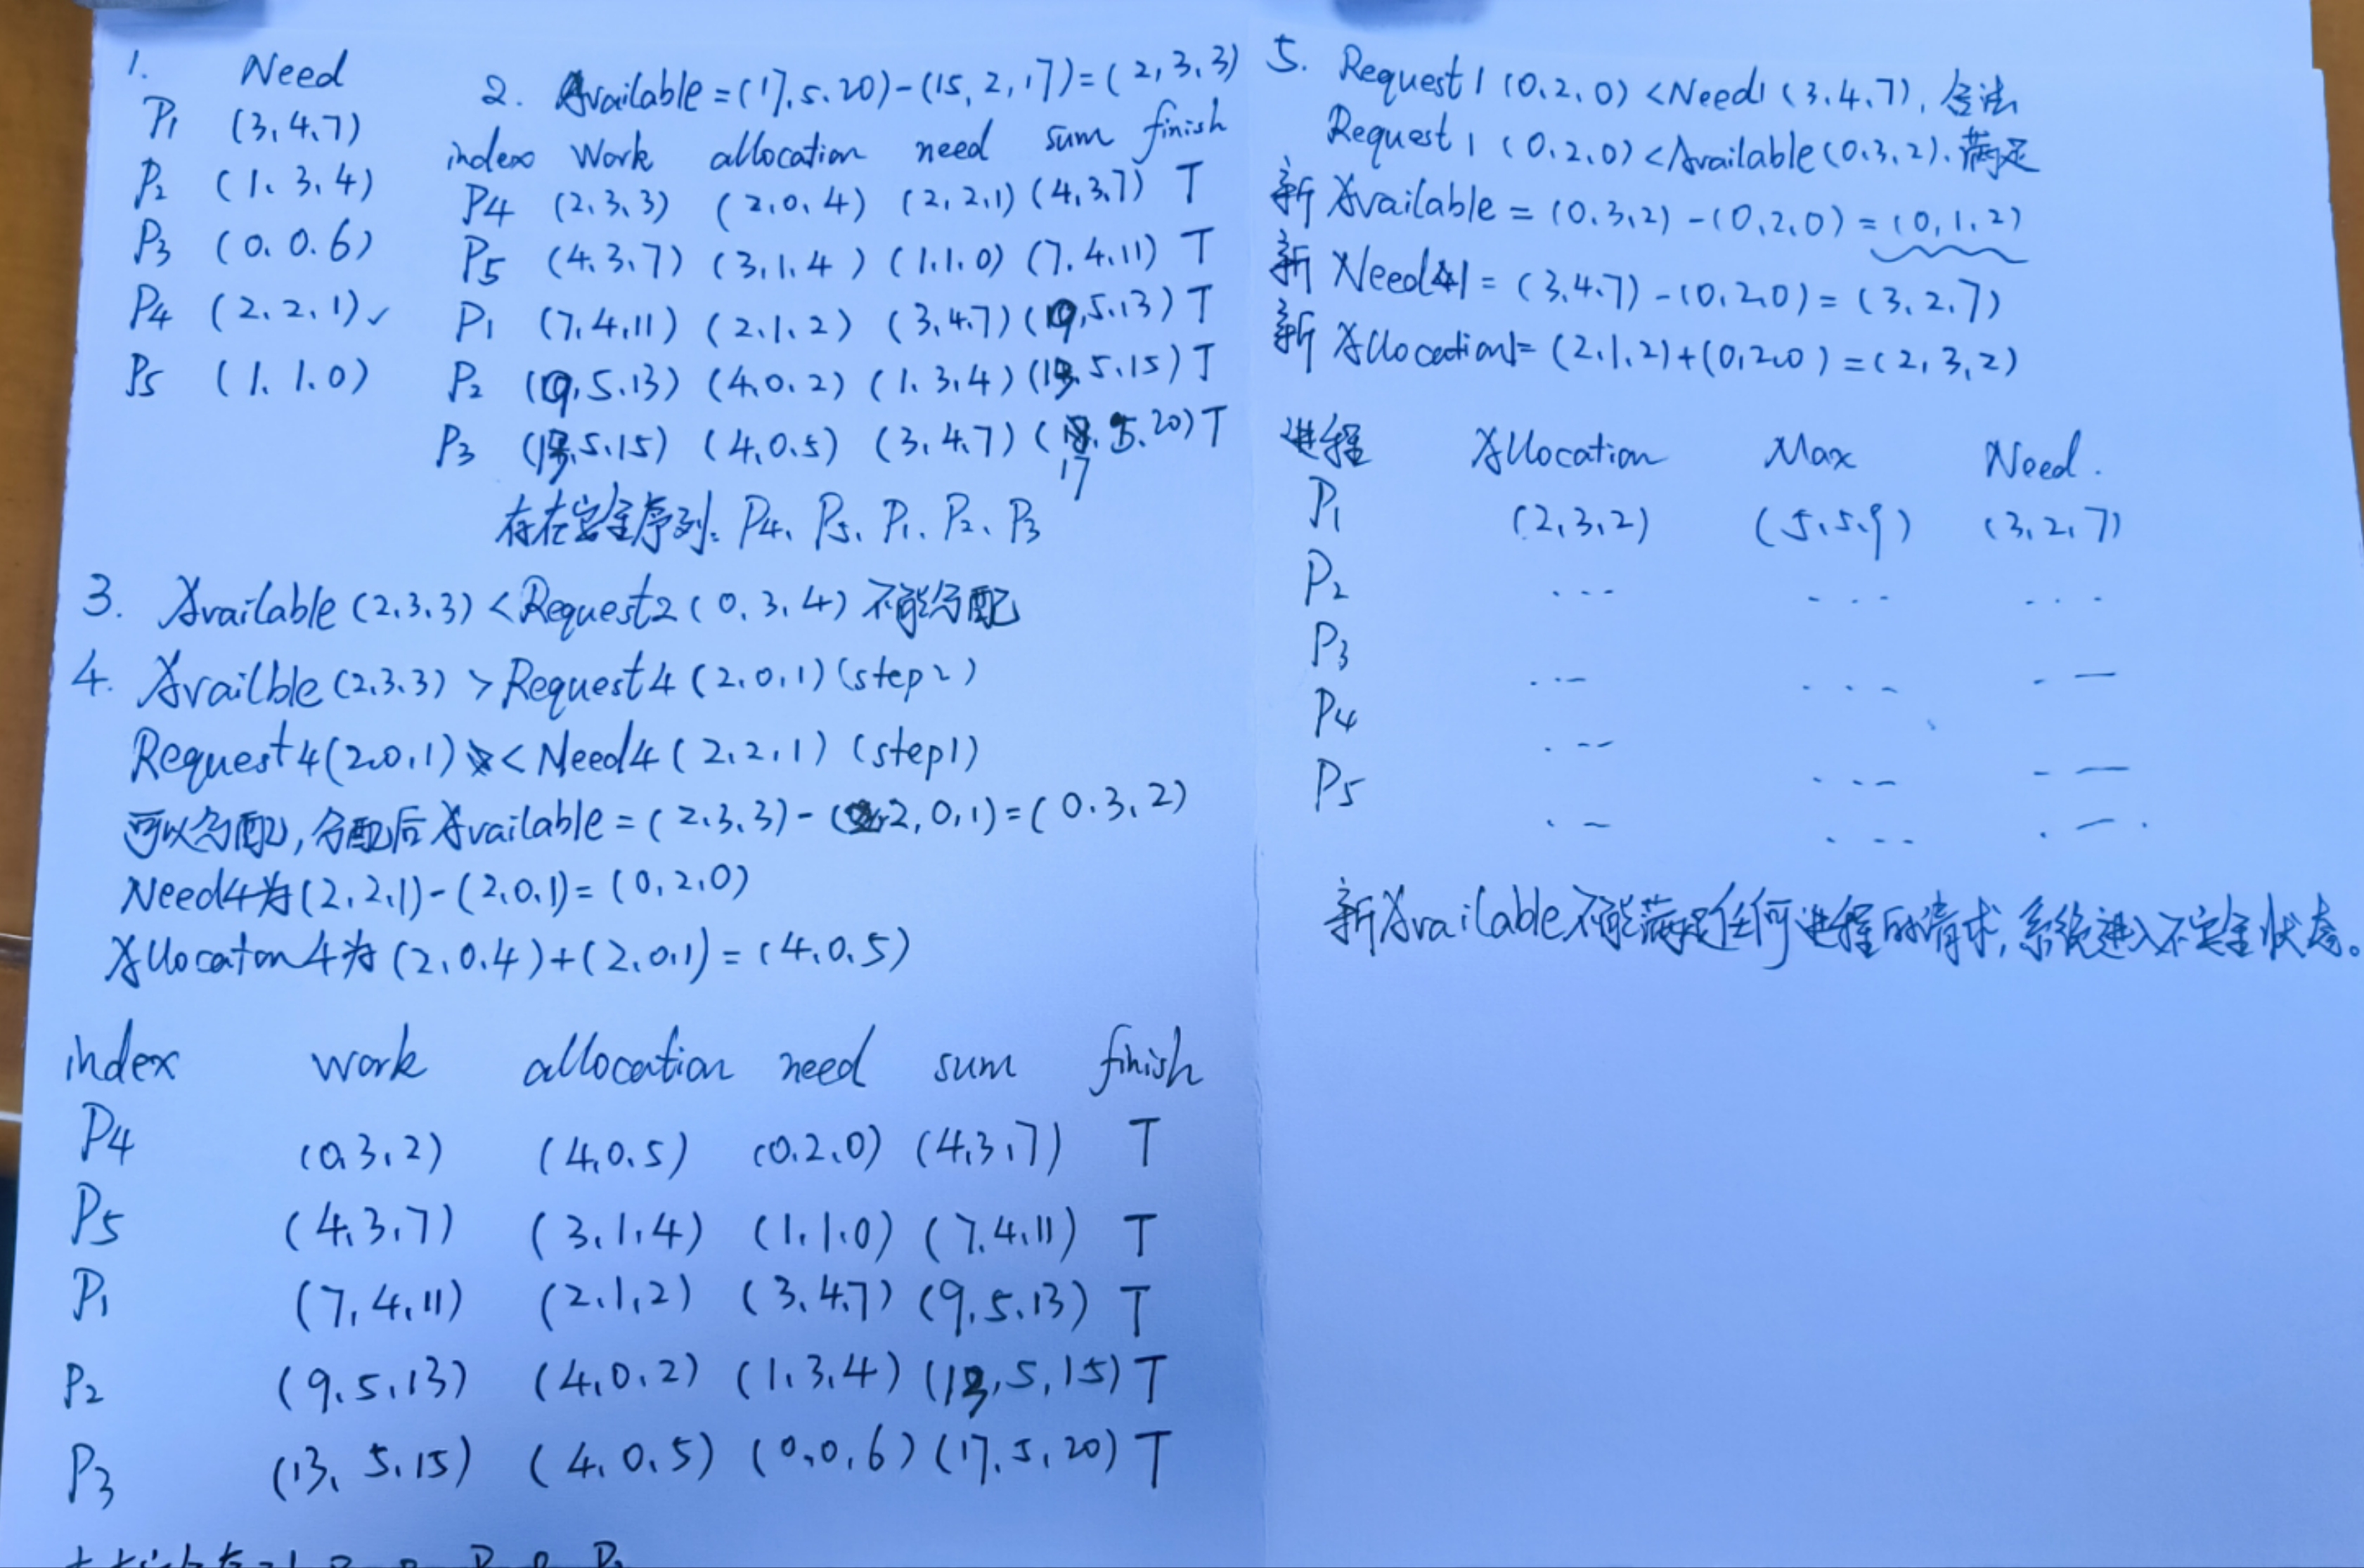 1. Need
P1 (3,4,7)
P2 (1,3,4)
P3 (0,0,6)
P4 (2,2,1)✓
P5 (1,1,0)
2. Available=(17,5,20)-(15,2,17)=(2,3,3)
index Work allocation need sum finish
P4 (2,3,3) (2,0,4) (2,2,1) (4,3,7) T
P5 (4,3,7) (3,1,4) (1,1,0) (7,4,11) T
P1 (7,4,11) (2,1,2) (3,4,7) (9,5,13) T
P2 (9,5,13) (4,0,2) (1,3,4) (13,5,15) T
P3 (13,5,15) (4,0,5) (3,4,7) (17,5,20) T
存在安全序列: P4、P5、P1、P2、P3
3. Available(2,3,3)<Request2(0,3,4)不能分配
4. Availble(2,3,3)>Request4(2,0,1)(step2)
Request4(2,0,1)<Need4(2,2,1)(step1)
可以分配,分配后Available=(2,3,3)-(2,0,1)=(0,3,2)
Need4为(2,2,1)-(2,0,1)=(0,2,0)
Allocaton4为(2,0,4)+(2,0,1)=(4,0,5)
index work allocation need sum finish
P4 (0,3,2) (4,0,5) (0,2,0) (4,3,7) T
P5 (4,3,7) (3,1,4) (1,1,0) (7,4,11) T
P1 (7,4,11) (2,1,2) (3,4,7) (9,5,13) T
P2 (9,5,13) (4,0,2) (1,3,4) (13,5,15) T
P3 (13,5,15) (4,0,5) (0,0,6) (17,5,20) T
5. Request1(0,2,0)<Need1(3,4,7),合法
Request1(0,2,0)<Available(0,3,2).满足
新Available=(0,3,2)-(0,2,0)=(0,1,2)
新Need1=(3,4,7)-(0,2,0)=(3,2,7)
新Allocation1=(2,1,2)+(0,2,0)=(2,3,2)
进程 Allocation Max Need.
P1 (2,3,2) (5,5,9) (3,2,7)
P2 ... ... ...
P3 ... ... ...
P4 ... ... ...
P5 ... ... ...
新Available不能满足任何进程的请求,系统进入不安全状态。